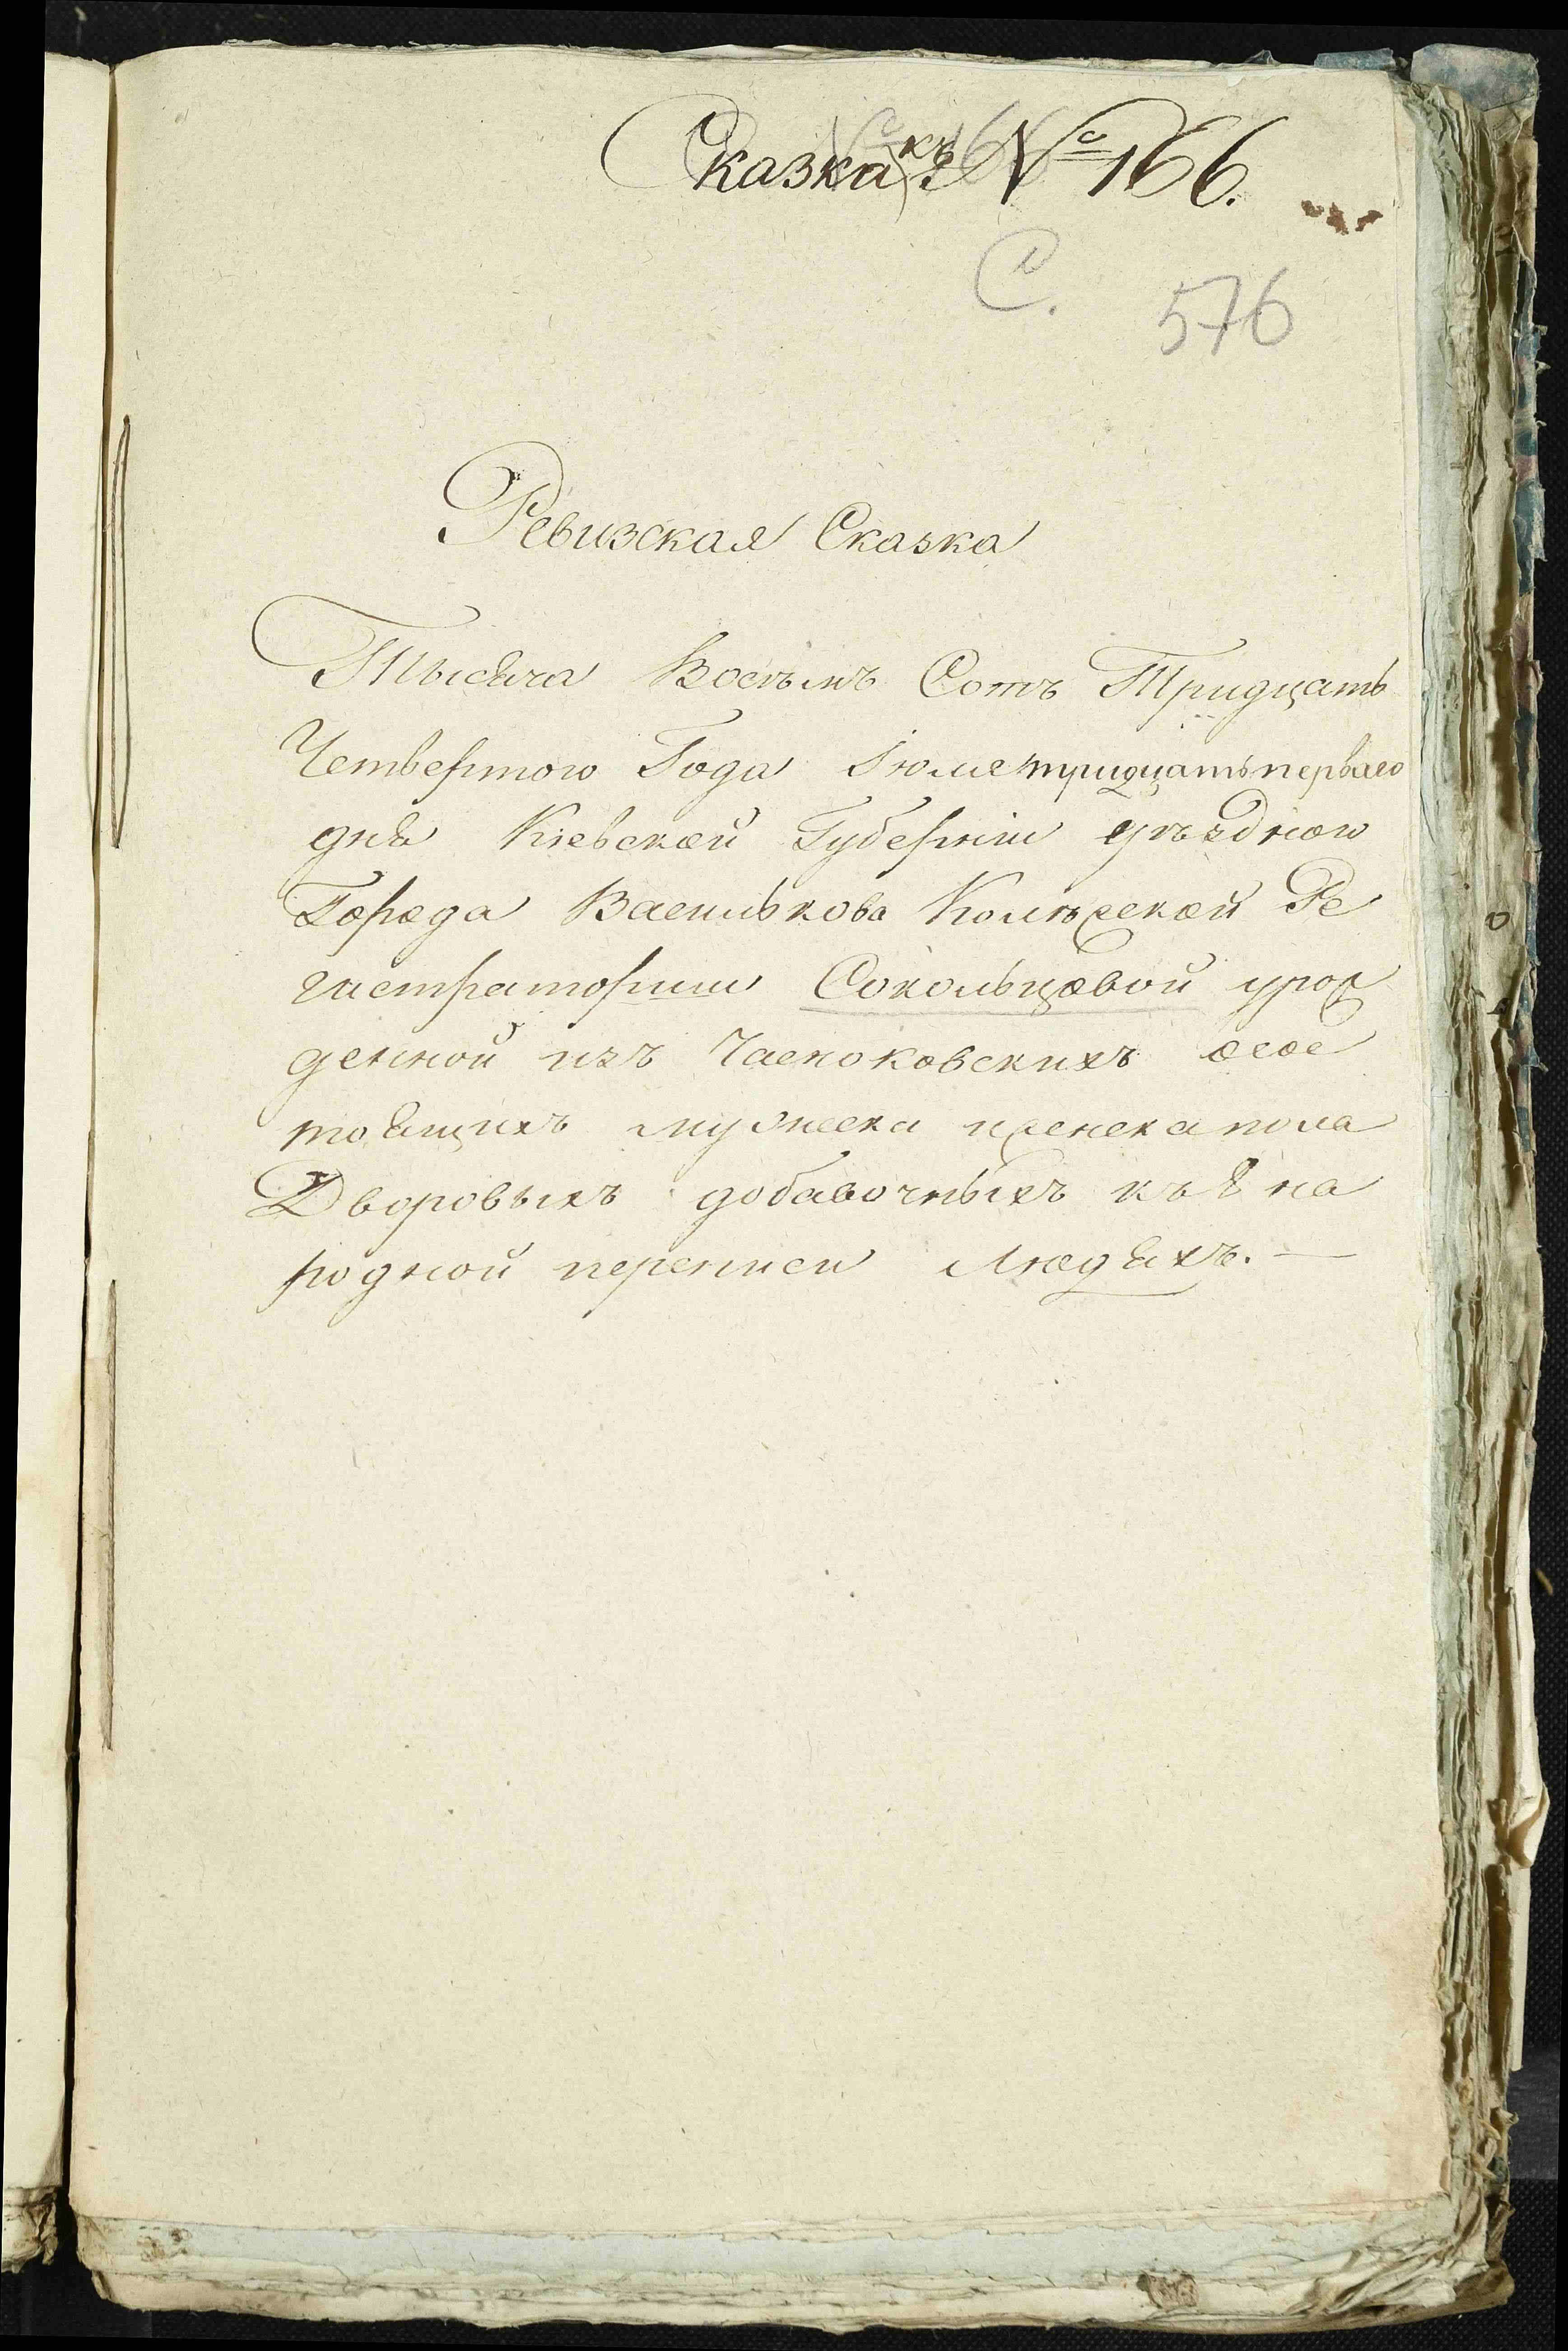 Сказка къ № 166.
С.
576
Ревизская Сказка
Тысяча Восъмъ Сотъ Тридцать
Четвертого Года Іюля тридцать перваго
дня Кіевской Губерніи уѣзднаго
Города Василькова Колѣжской Ре
гистраторши Сокольцовой урож
денной изъ Чаеноковскихъ осос
тоящихъ мужеска иженска пола
Дворовыхъ добавочныхъ къ 8 на
родной переписи людяхъ. —